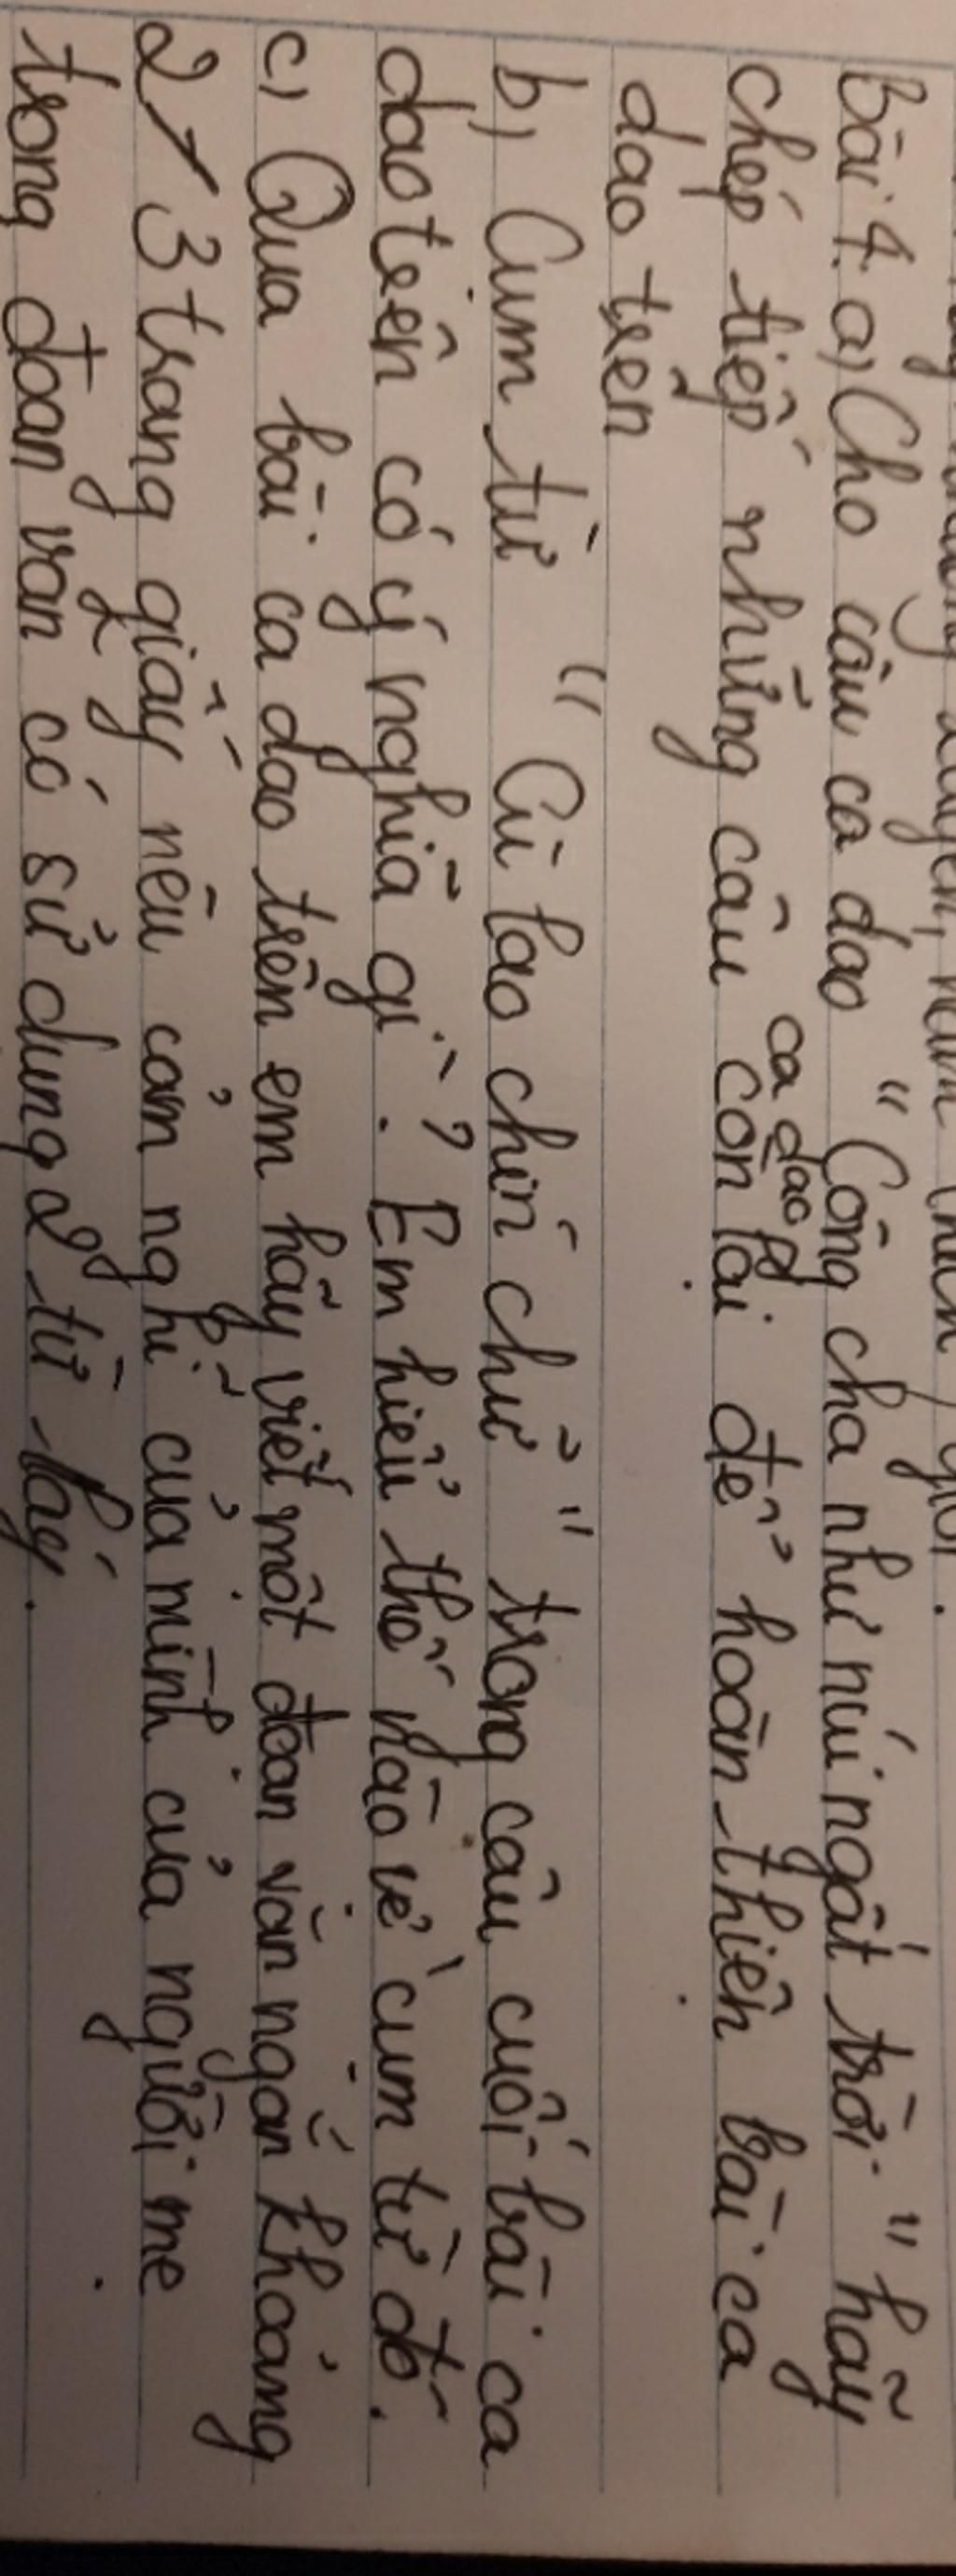 Bài 4. a) Cho câu ca dao " Công cha như núi ngất trời " hãy
chép tiếp những câu ca dao còn lại để hoàn thiện bài ca
dao trên
b) Cụm từ " Cù lao chín chữ " trong câu cuối bài ca
dao trên có ý nghĩa gì ? Em hiểu thế nào về cụm từ đó.
c) Qua bài ca dao trên em hãy viết một đoạn văn ngắn khoảng
2 / 3 trang giấy nêu cảm nghĩ của mình của người mẹ
trong đoạn văn có sử dụng 2 từ láy.